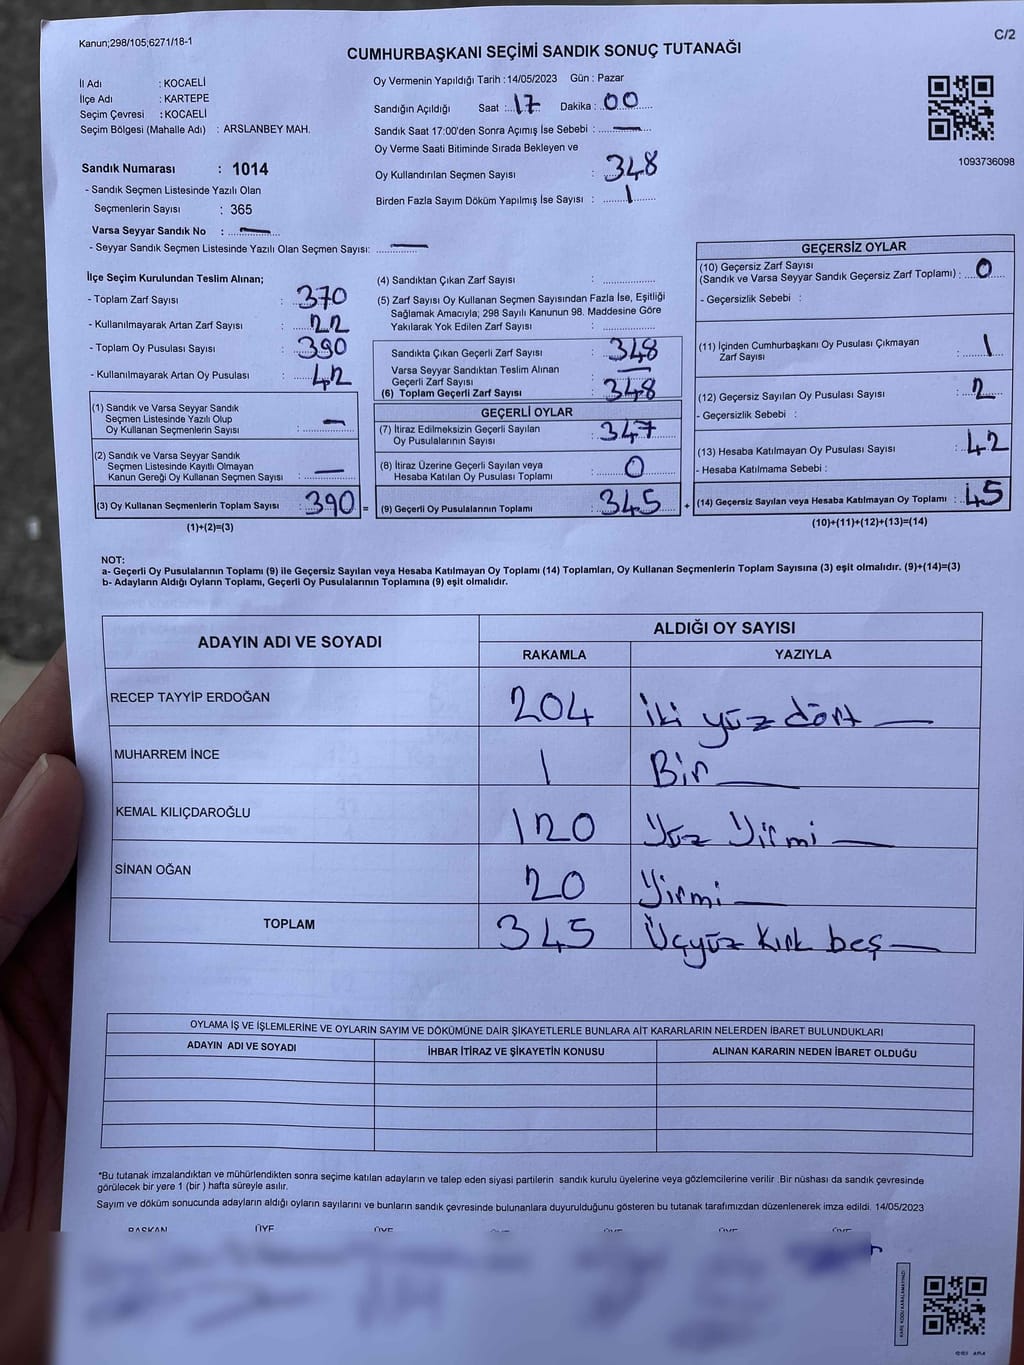 Kanun;298/105;6271/18-1
C/2
CUMHURBAŞKANI SEÇİMİ SANDIK SONUÇ TUTANAĞI
İl Adı : KOCAELİ
İlçe Adı : KARTEPE
Seçim Çevresi : KOCAELİ
Seçim Bölgesi (Mahalle Adı) : ARSLANBEY MAH.
Sandık Numarası : 1014
- Sandık Seçmen Listesinde Yazılı Olan
Seçmenlerin Sayısı : 365
Varsa Seyyar Sandık No : —
- Seyyar Sandık Seçmen Listesinde Yazılı Olan Seçmen Sayısı: —
Oy Vermenin Yapıldığı Tarih : 14/05/2023 Gün : Pazar
Sandığın Açıldığı Saat : 17 Dakika : 00
Sandık Saat 17:00'den Sonra Açımış İse Sebebi : —
Oy Verme Saati Bitiminde Sırada Bekleyen ve
Oy Kullandırılan Seçmen Sayısı : 348
Birden Fazla Sayım Döküm Yapılmış İse Sayısı : 1
1093736098
İlçe Seçim Kurulundan Teslim Alınan;
- Toplam Zarf Sayısı : 370
- Kullanılmayarak Artan Zarf Sayısı : 22
- Toplam Oy Pusulası Sayısı : 390
- Kullanılmayarak Artan Oy Pusulası : 42
(1) Sandık ve Varsa Seyyar Sandık
Seçmen Listesinde Yazılı Olup
Oy Kullanan Seçmenlerin Sayısı : —
(2) Sandık ve Varsa Seyyar Sandık
Seçmen Listesinde Kayıtlı Olmayan
Kanun Gereği Oy Kullanan Seçmen Sayısı : —
(3) Oy Kullanan Seçmenlerin Toplam Sayısı : 390 =
(1)+(2)=(3)
(4) Sandıktan Çıkan Zarf Sayısı :
(5) Zarf Sayısı Oy Kullanan Seçmen Sayısından Fazla İse, Eşitliği
Sağlamak Amacıyla; 298 Sayılı Kanunun 98. Maddesine Göre
Yakılarak Yok Edilen Zarf Sayısı :
Sandıkta Çıkan Geçerli Zarf Sayısı : 348
Varsa Seyyar Sandıktan Teslim Alınan
Geçerli Zarf Sayısı : —
(6) Toplam Geçerli Zarf Sayısı : 348
GEÇERLİ OYLAR
(7) İtiraz Edilmeksizin Geçerli Sayılan
Oy Pusulalarının Sayısı : 347
(8) İtiraz Üzerine Geçerli Sayılan veya
Hesaba Katılan Oy Pusulası Toplamı : 0
(9) Geçerli Oy Pusulalarının Toplamı : 345 +
GEÇERSİZ OYLAR
(10) Geçersiz Zarf Sayısı
(Sandık ve Varsa Seyyar Sandık Geçersiz Zarf Toplamı) : 0
- Geçersizlik Sebebi :
(11) İçinden Cumhurbaşkanı Oy Pusulası Çıkmayan
Zarf Sayısı : 1
(12) Geçersiz Sayılan Oy Pusulası Sayısı : 2
- Geçersizlik Sebebi :
(13) Hesaba Katılmayan Oy Pusulası Sayısı : 42
- Hesaba Katılmama Sebebi :
(14) Geçersiz Sayılan veya Hesaba Katılmayan Oy Toplamı : 45
(10)+(11)+(12)+(13)=(14)
NOT:
a- Geçerli Oy Pusulalarının Toplamı (9) ile Geçersiz Sayılan veya Hesaba Katılmayan Oy Toplamı (14) Toplamları, Oy Kullanan Seçmenlerin Toplam Sayısına (3) eşit olmalıdır. (9)+(14)=(3)
b- Adayların Aldığı Oyların Toplamı, Geçerli Oy Pusulalarının Toplamına (9) eşit olmalıdır.
ADAYIN ADI VE SOYADI ALDIĞI OY SAYISI
RAKAMLA YAZIYLA
RECEP TAYYİP ERDOĞAN 204 İki yüz dört —
MUHARREM İNCE 1 Bir —
KEMAL KILIÇDAROĞLU 120 Yüz Yirmi —
SİNAN OĞAN 20 Yirmi —
TOPLAM 345 Üçyüz Kırk beş —
OYLAMA İŞ VE İŞLEMLERİNE VE OYLARIN SAYIM VE DÖKÜMÜNE DAİR ŞİKAYETLERLE BUNLARA AİT KARARLARIN NELERDEN İBARET BULUNDUKLARI
ADAYIN ADI VE SOYADI İHBAR İTİRAZ VE ŞİKAYETİN KONUSU ALINAN KARARIN NEDEN İBARET OLDUĞU
*Bu tutanak imzalandıktan ve mühürlendikten sonra seçime katılan adayların ve talep eden siyasi partilerin sandık kurulu üyelerine veya gözlemcilerine verilir .Bir nüshası da sandık çevresinde
görülecek bir yere 1 (bir ) hafta süreyle asılır.
Sayım ve döküm sonucunda adayların aldığı oyların sayılarını ve bunların sandık çevresinde bulunanlara duyurulduğunu gösteren bu tutanak tarafımızdan düzenlenerek imza edildi. 14/05/2023
BAŞKAN ÜYE ÜYE ÜYE ÜYE ÜYE ÜYE
KARE KODU KARALAMAYINIZ!